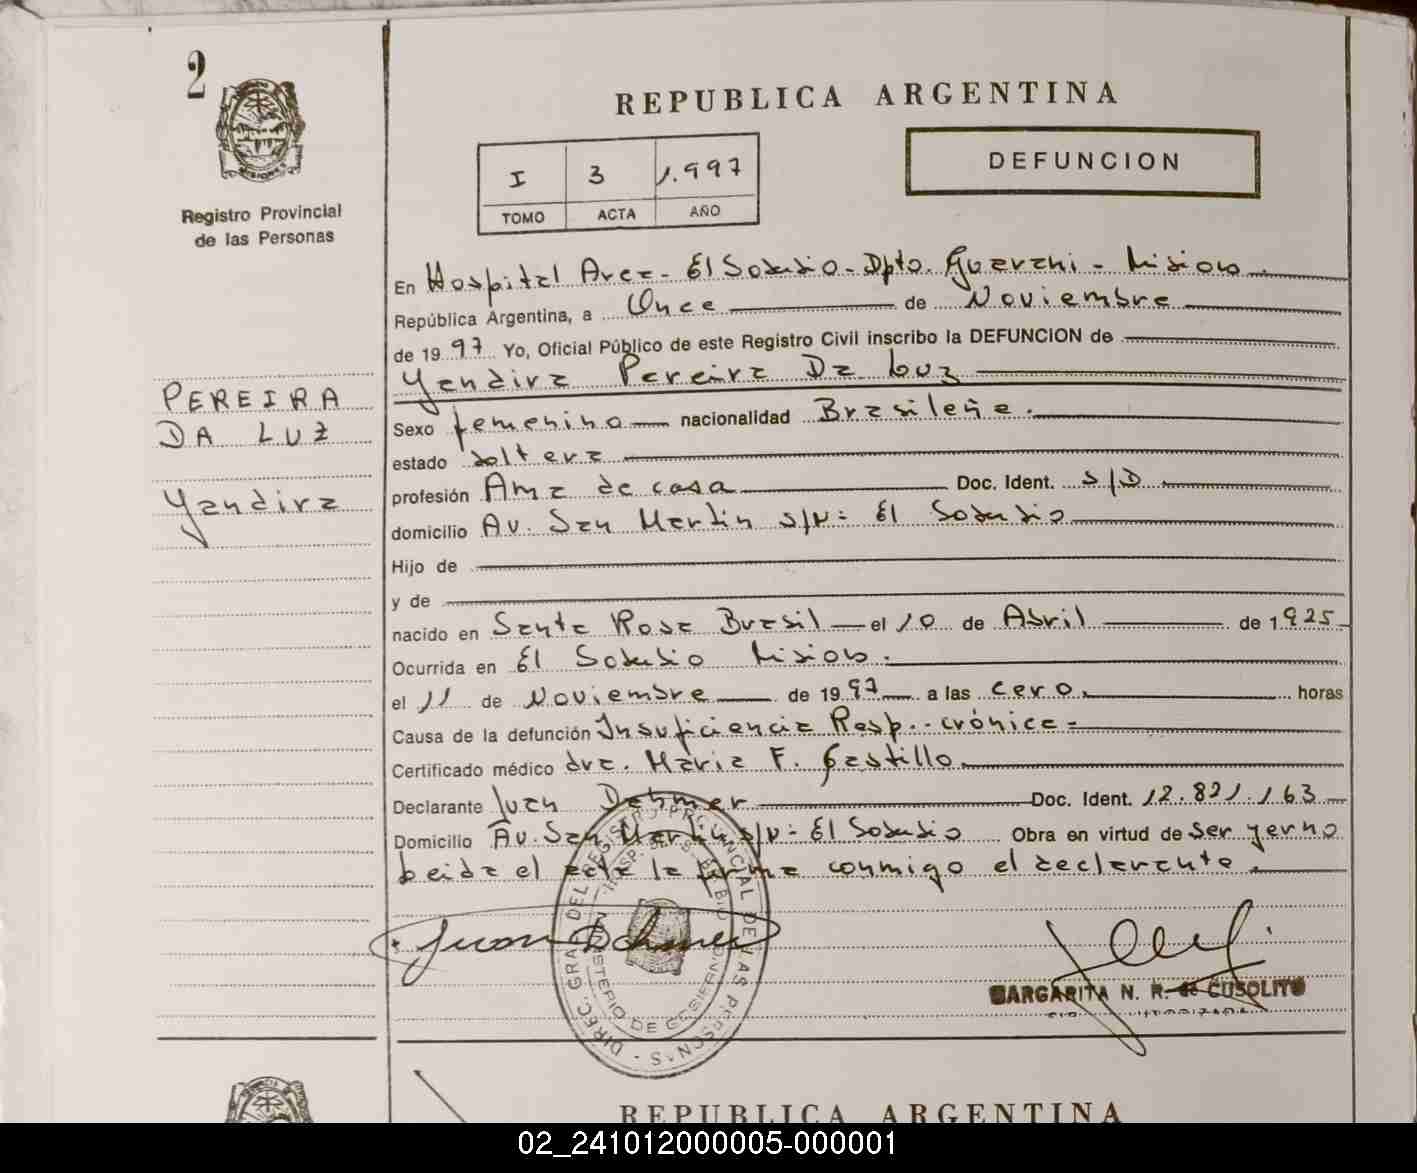 2
REPUBLICA ARGENTINA
DEFUNCION
I 3 1.997
TOMO ACTA AÑO
Registro Provincial
de las Personas
En Hospital Area - El Soberbio - Dpto. Guarani - Misiones
República Argentina, a Once de Noviembre
de 19 97 Yo, Oficial Público de este Registro Civil inscribo la DEFUNCION de
Yandira Pereira Da Luz
PEREIRA
DA LUZ
Yandira
Sexo femenino nacionalidad Brasileña.
estado soltera
profesión Ama de casa Doc. Ident. S/D
domicilio Av. San Martin s/N: El Soberbio
Hijo de
y de
nacido en Santa Rosa Brasil el 10 de Abril de 1.925
Ocurrida en El Soberbio Misiones.
el 11 de Noviembre de 19 97 a las cero. horas
Causa de la defunción Insuficiencia Resp.- crónica =
Certificado médico dra. Maria F. Castillo
Declarante Juan Dahmer Doc. Ident. 12.821.163
Domicilio Av. San Martin s/N: El Soberbio Obra en virtud de ser yerno
leida el acta la firma conmigo el declarante.
Juan Dahmer
DIREC. GRAL. DEL REGISTRO PROVINCIAL DE LAS PERSONAS
MINISTERIO DE GOBIERNO
MARGARITA N. R. de CUSOLITO
REPUBLICA ARGENTINA
02_241012000005-000001